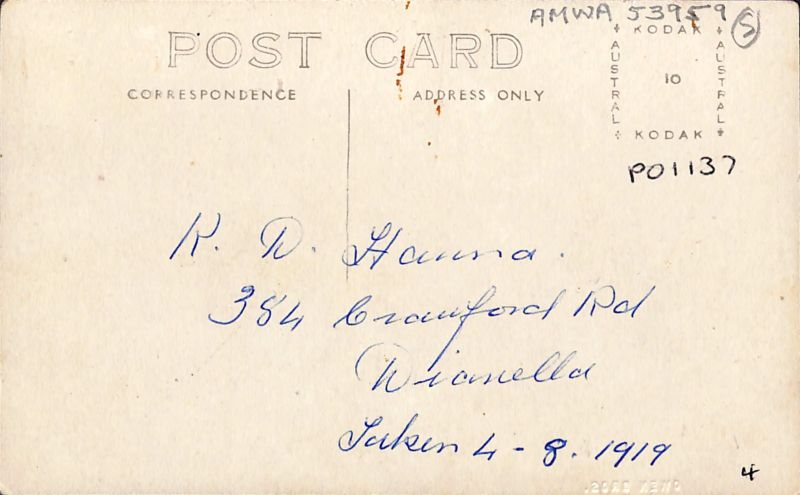 AMWA 53959 5
POST CARD
CORRESPONDENCE ADDRESS ONLY
KODAK
AUSTRAL 10 AUSTRAL
KODAK
P01137
K. D. Hanna.
384 Crawford Rd
Dianella
Taken 4-8.1919
4